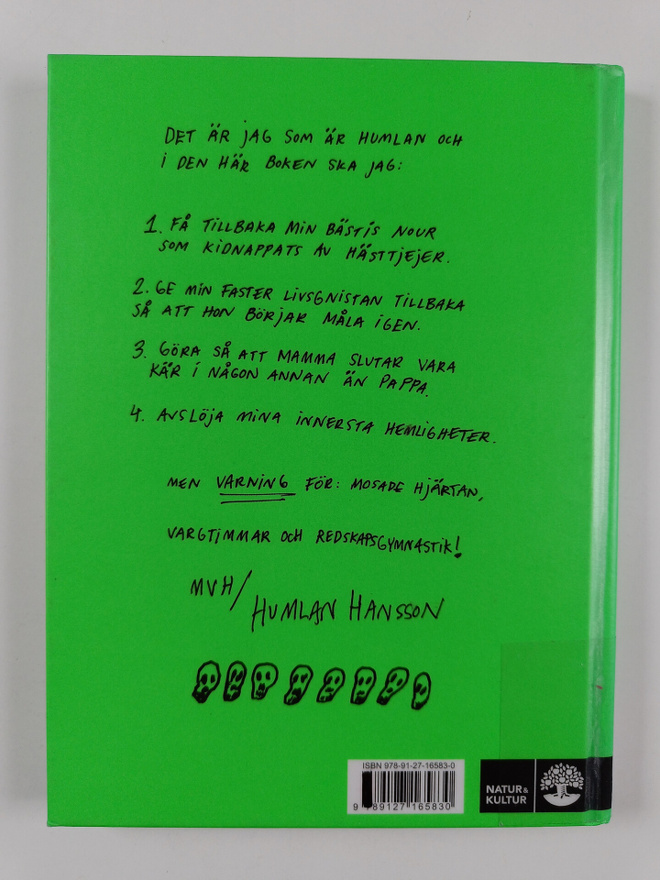 DET ÄR JAG SOM ÄR HUMLAN OCH
I DEN HÄR BOKEN SKA JAG:
1. FÅ TILLBAKA MIN BÄSTIS NOUR
SOM KIDNAPPATS AV HÄSTTJEJER.
2. GE MIN FASTER LIVSGNISTAN TILLBAKA
SÅ ATT HON BÖRJAR MÅLA IGEN.
3. GÖRA SÅ ATT MAMMA SLUTAR VARA
KÄR I NÅGON ANNAN ÄN PAPPA.
4. AVSLÖJA MINA INNERSTA HEMLIGHETER.
MEN VARNING FÖR: MOSADE HJÄRTAN,
VARGTIMMAR OCH REDSKAPSGYMNASTIK!
MVH/
HUMLAN HANSSON
ISBN 978-91-27-16583-0
9 789127 165830
NATUR &
KULTUR